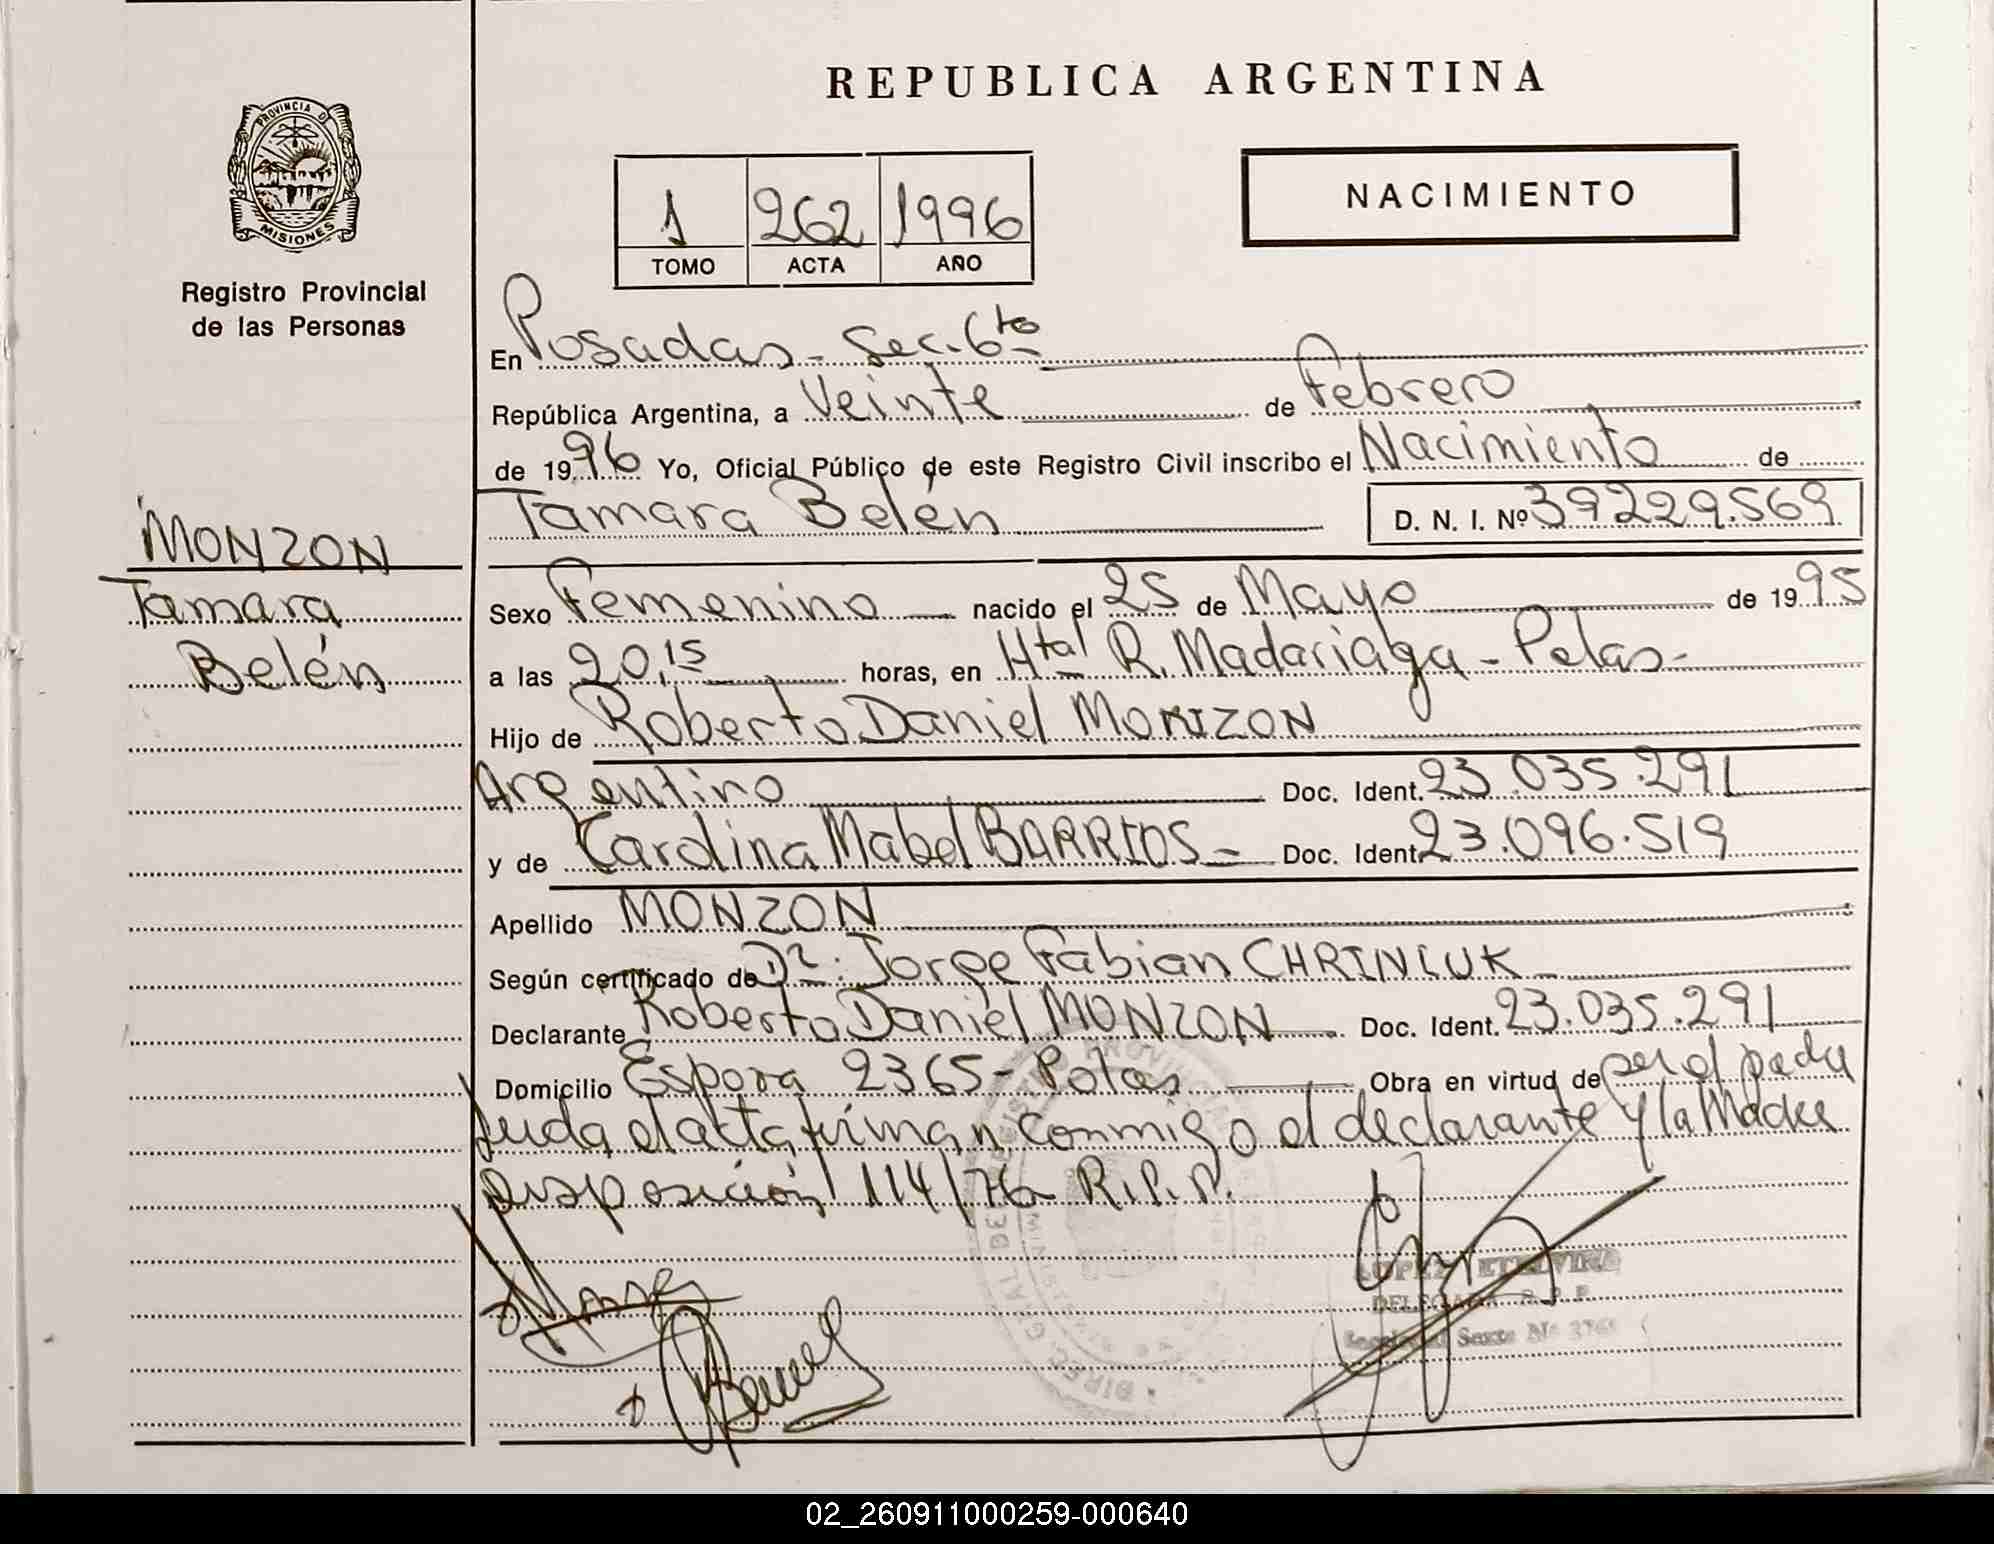 PROVINCIA DE
MISIONES
Registro Provincial
de las Personas
MONZON
Tamara
Belén
REPUBLICA ARGENTINA
1 262 1996
TOMO ACTA AÑO
NACIMIENTO
En Posadas - Sec. 6to
República Argentina, a Veinte de Febrero
de 1996 Yo, Oficial Público de este Registro Civil inscribo el Nacimiento de
Tamara Belén D. N. I. Nº 39229.569
Sexo Femenino nacido el 25 de Mayo de 1995
a las 20,15 horas, en Htal R. Madariaga - Pdas -
Hijo de Roberto Daniel MONZON
Argentino Doc. Ident. 23.035.291
y de Carolina Mabel BARRIOS - Doc. Ident. 23.096.519
Apellido MONZON
Según certificado de Dr. Jorge Fabian
Declarante Roberto Daniel MONZON Doc. Ident. 23.035.291
Domicilio Espora 2365 - Pdas Obra en virtud de ser el padre
leida el acta firman conmigo el declarante y la Madre
Disposición 114/76 R.P.P.
LOPEZ ETELVINA
DELEGADA R. P. P.
Seccional Sexta Nº
02_260911000259-000640